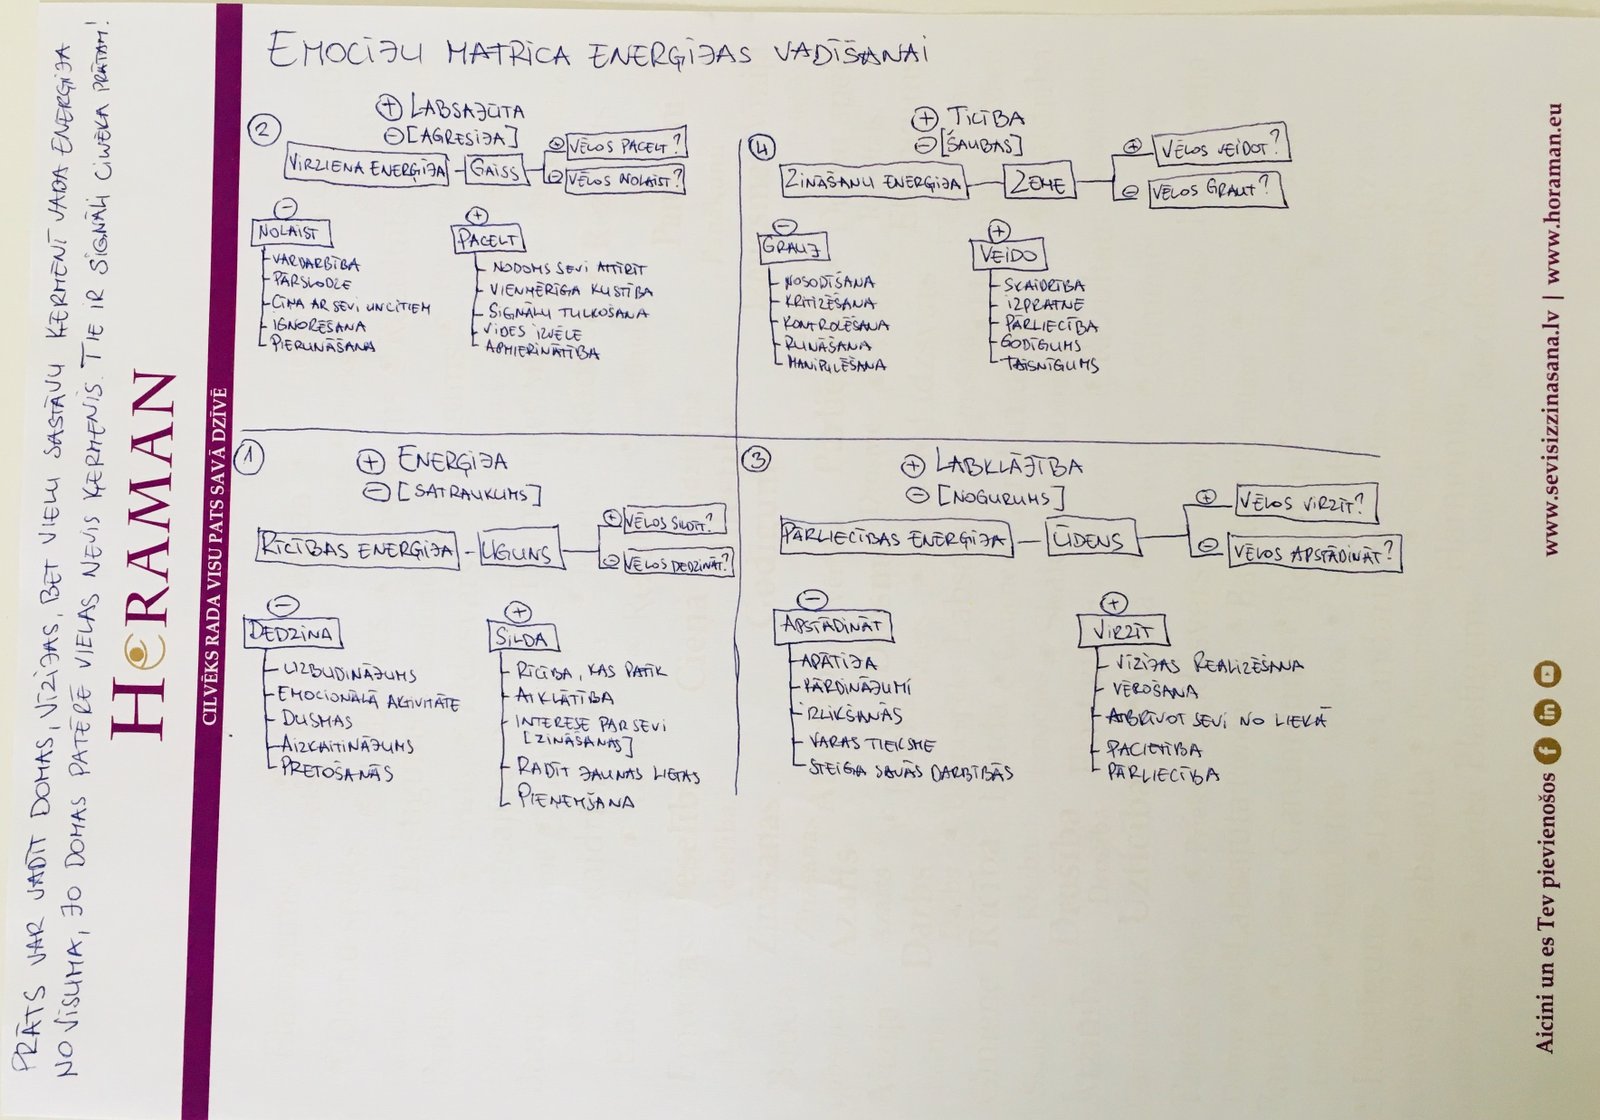 EMOCIJU MATRICA ENERĢIJAS VADĪŠANAI
2
+ LABSAJŪTA
- [AGRESIJA]
VIRZIENA ENERĢIJA - GAISS
+ VĒLOS PACELT?
- VĒLOS NOLAIST?
-
NOLAIST
VARDARBĪBA
PĀRSLODZE
CĪŅA AR SEVI UN CITIEM
IGNORĒŠANA
PIERUNĀŠANA
+
PACELT
NODOMS SEVI ATTĪRĪT
VIENMĒRĪGA KUSTĪBA
SIGNĀLU TULKOŠANA
VIDES IZVĒLE
APMIERINĀTĪBA
4
+ TICĪBA
- [ŠAUBAS]
ZINĀŠANU ENERĢIJA - ZEME
+ VĒLOS VEIDOT?
- VĒLOS GRAUT?
-
GRAUJ
NOSODĪŠANA
KRITIZĒŠANA
KONTROLĒŠANA
RUNĀŠANA
MANIPULĒŠANA
+
VEIDO
SKAIDRĪBA
IZPRATNE
PĀRLIECĪBA
GODĪGUMS
TAISNĪGUMS
1
+ ENERĢIJA
- [SATRAUKUMS]
RĪCĪBAS ENERĢIJA - UGUNS
+ VĒLOS SILDĪT?
- VĒLOS DEDZINĀT?
-
DEDZINA
UZBUDINĀJUMS
EMOCIONĀLĀ AKTIVITĀTE
DUSMAS
AIZKAITINĀJUMS
PRETOŠANĀS
+
SILDA
RĪCĪBA, KAS PATĪK
ATKLĀTĪBA
INTERESE PAR SEVI
[ZINĀŠANAS]
RADĪT JAUNAS LIETAS
PIEŅEMŠANA
3
+ LABKLĀJĪBA
- [NOGURUMS]
PĀRLIECĪBAS ENERĢIJA - ŪDENS
+ VĒLOS VIRZĪT?
- VĒLOS APSTĀDINĀT?
-
APSTĀDINĀT
APĀTIJA
KĀRDINĀJUMI
IZLIKŠANĀS
VARAS TIEKSME
STEIGA SAVĀS DARBĪBĀS
+
VIRZĪT
VĪZIJAS REALIZĒŠANA
VĒROŠANA
ATBRĪVOT SEVI NO LIEKĀ
PACIETĪBA
PĀRLIECĪBA
PRĀTS VAR VADĪT DOMAS, VĪZIJAS, BET VIELU SASTĀVU ĶERMENĪ VADA ENERĢIJA
NO VISUMA, JO DOMAS PATĒRĒ VIELAS NEVIS ĶERMENIS. TIE IR SIGNĀLI CILVĒKA PRĀTAM!
HORAMAN
CILVĒKS RADA VISU PATS SAVĀ DZĪVĒ
Aicini un es Tev pievienošos www.sevisizzinasana.lv | www.horaman.eu